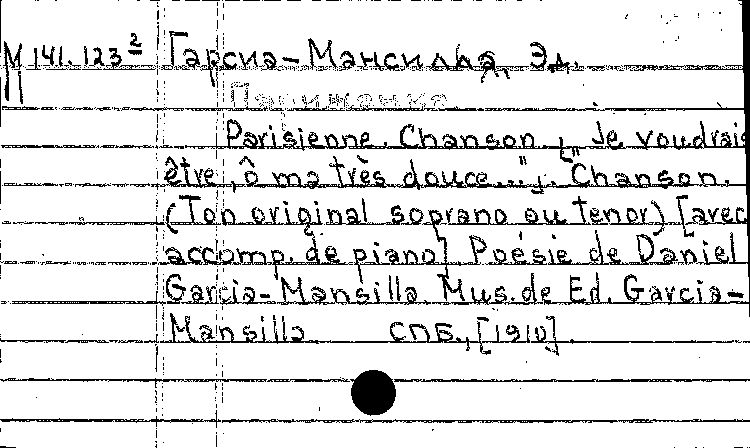 М 141.123² Гарсиа-Мансилья, Эд.
Парижанка
Parisienne. Chanson. ["Je voudrais
être, ô ma très douce..."]. Chanson.
(Ton original soprano ou tenor) [avec
accomp. de piano]. Poésie de Daniel
Garcia-Mansilla. Mus. de Ed. Garcia-
Mansilla. СПБ., [1910].